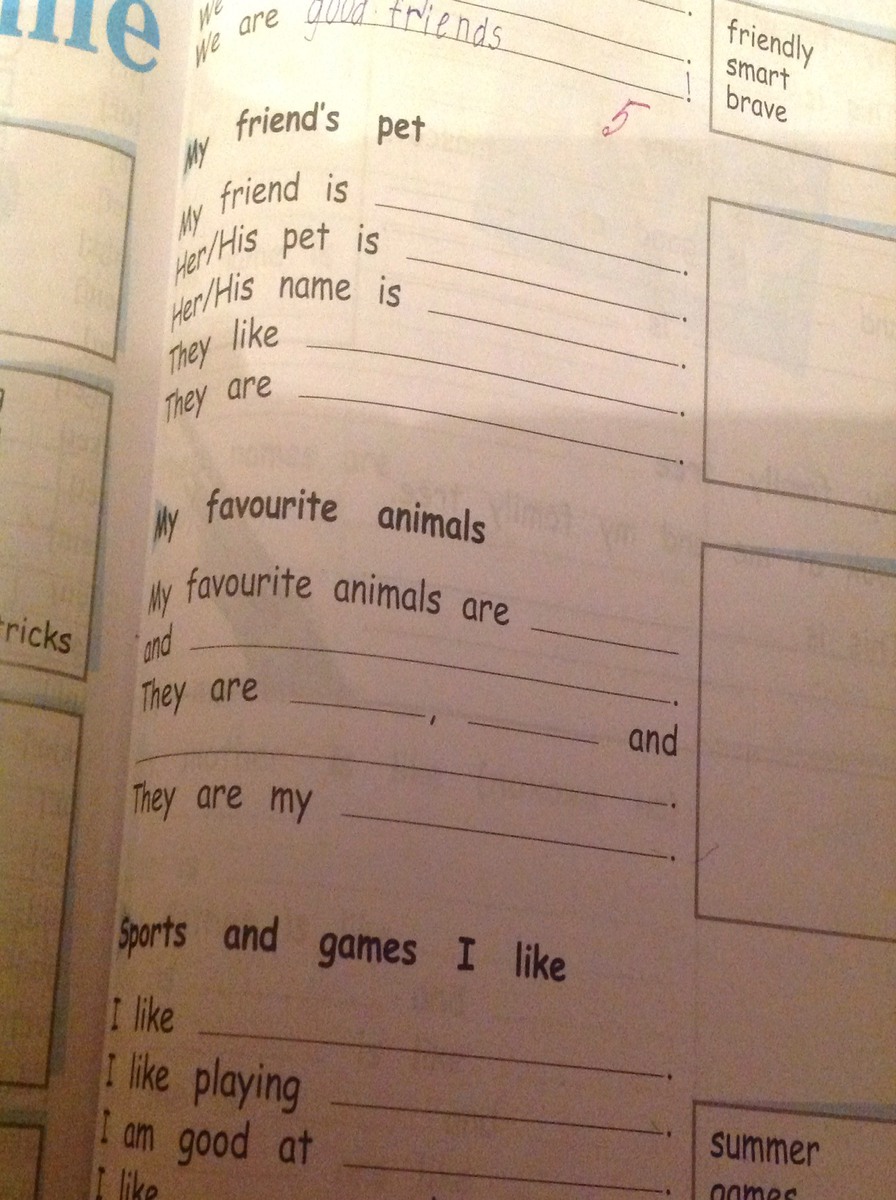 me
We
We are good friends
!
friendly
smart
brave
5
My friend's pet
My friend is .
Her/His pet is .
Her/His name is .
They like .
They are .
My favourite animals
My favourite animals are
and .
They are , and
.
They are my .
tricks
Sports and games I like
I like .
I like playing .
I am good at .
I like
summer
games